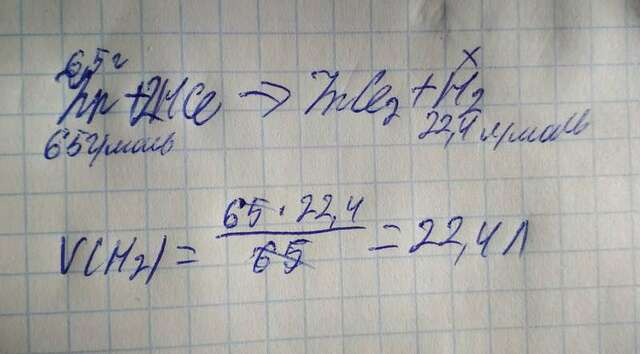 6,5г x
Zn + 2HCl → ZnCl₂ + H₂
65г/моль 22,4 л/моль
V(H₂) = 65 · 22,4 / 65 = 22,4 л